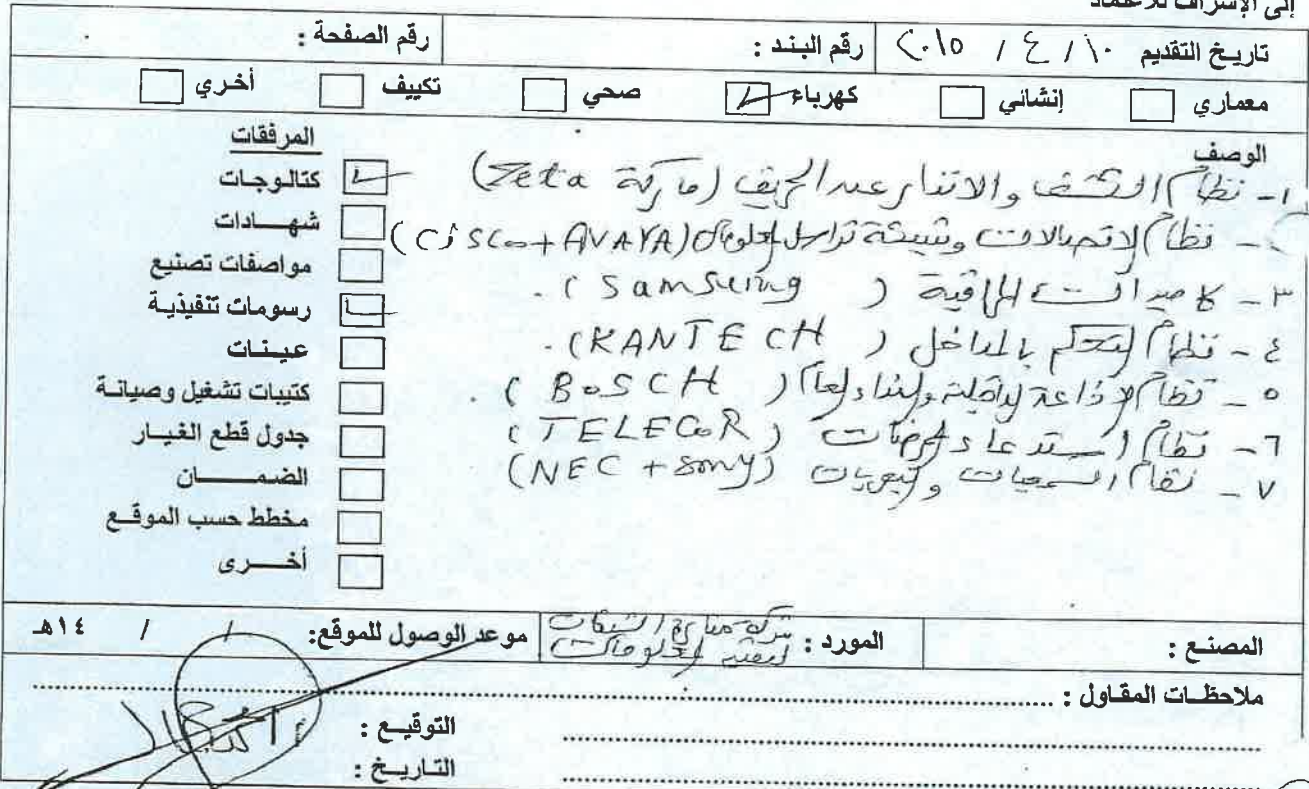 إلى الإشراف للاعتماد
تاريخ التقديم ١٠ / ٤ / ٢٠١٥ رقم البند : رقم الصفحة :
معماري إنشائي كهرباء صحي تكييف أخري
الوصف
١- نظام الكشف والانذار عن الحريق (ماركة Zeta)
٢- نظام الاتصالات وشبكة تراسل المعلومات (Cisco + AVAYA)
٣- كاميرات المراقبة ( Samsung ) .
٤- نظام التحكم بالمداخل ( KANTECH ) .
٥- نظام الإذاعة الداخلية والنداء العام ( BOSCH ) .
٦- نظام استدعاء الممرضات ( TELECOR )
٧- نظام السمعيات والمرئيات (NEC + Sony)
المرفقات
كتالوجات
شهــادات
مواصفات تصنيع
رسومات تنفيذية
عينات
كتيبات تشغيل وصيانة
جدول قطع الغيار
الضمــان
مخطط حسب الموقع
أخــرى
المصنع : المورد : شركة الشبكات لتقنية المعلومات موعد الوصول للموقع: / / ١٤هـ
ملاحظات المقاول :
التوقيع :
التاريخ :